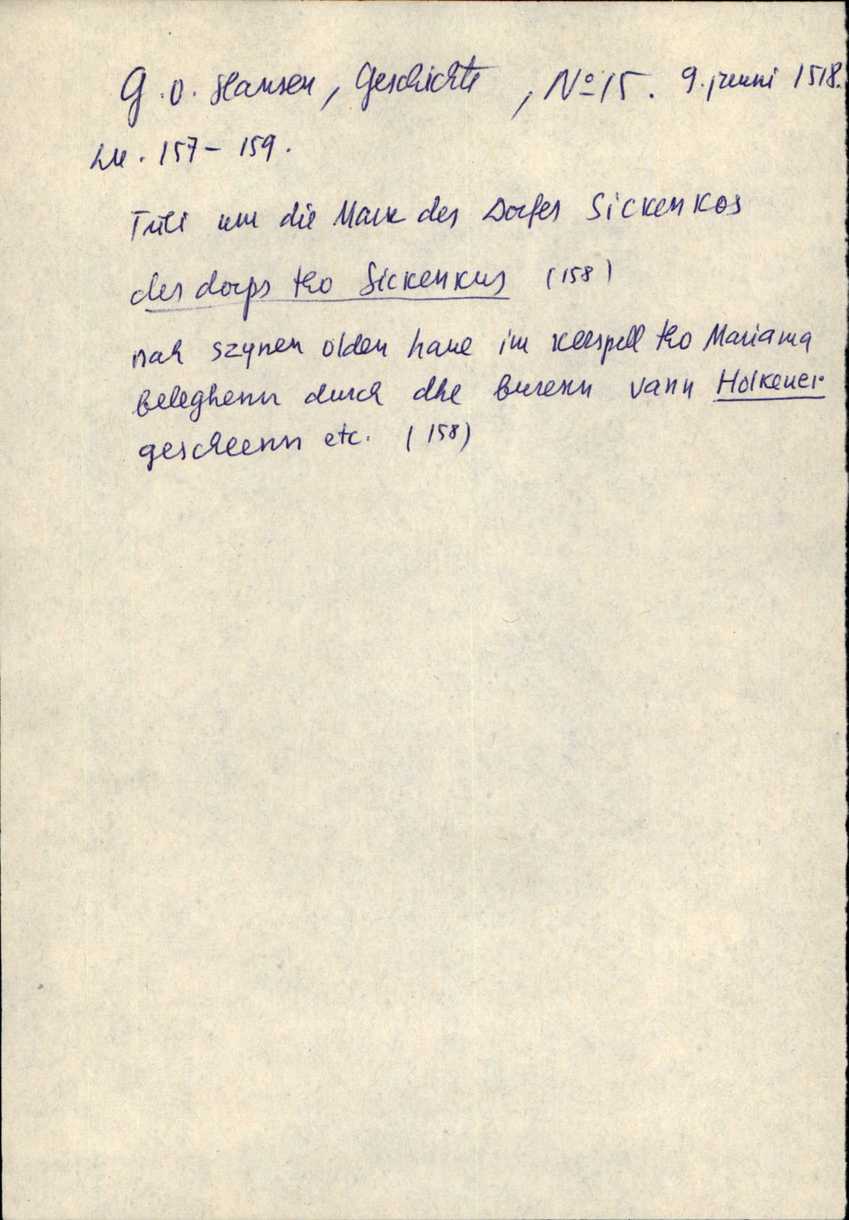 G. v. Hansen, Geschichte, No 15. 9. juuni 1518.
Lk. 157-159.
Tüli um die Mark des Dorfes Sickenkos
des dorps tho Sickenkus (158)
nah szynen olden haue im kerspell tho Mariama
beleghenn durch dhe burenn vann Holkeuer
gescheenn etc. (158)